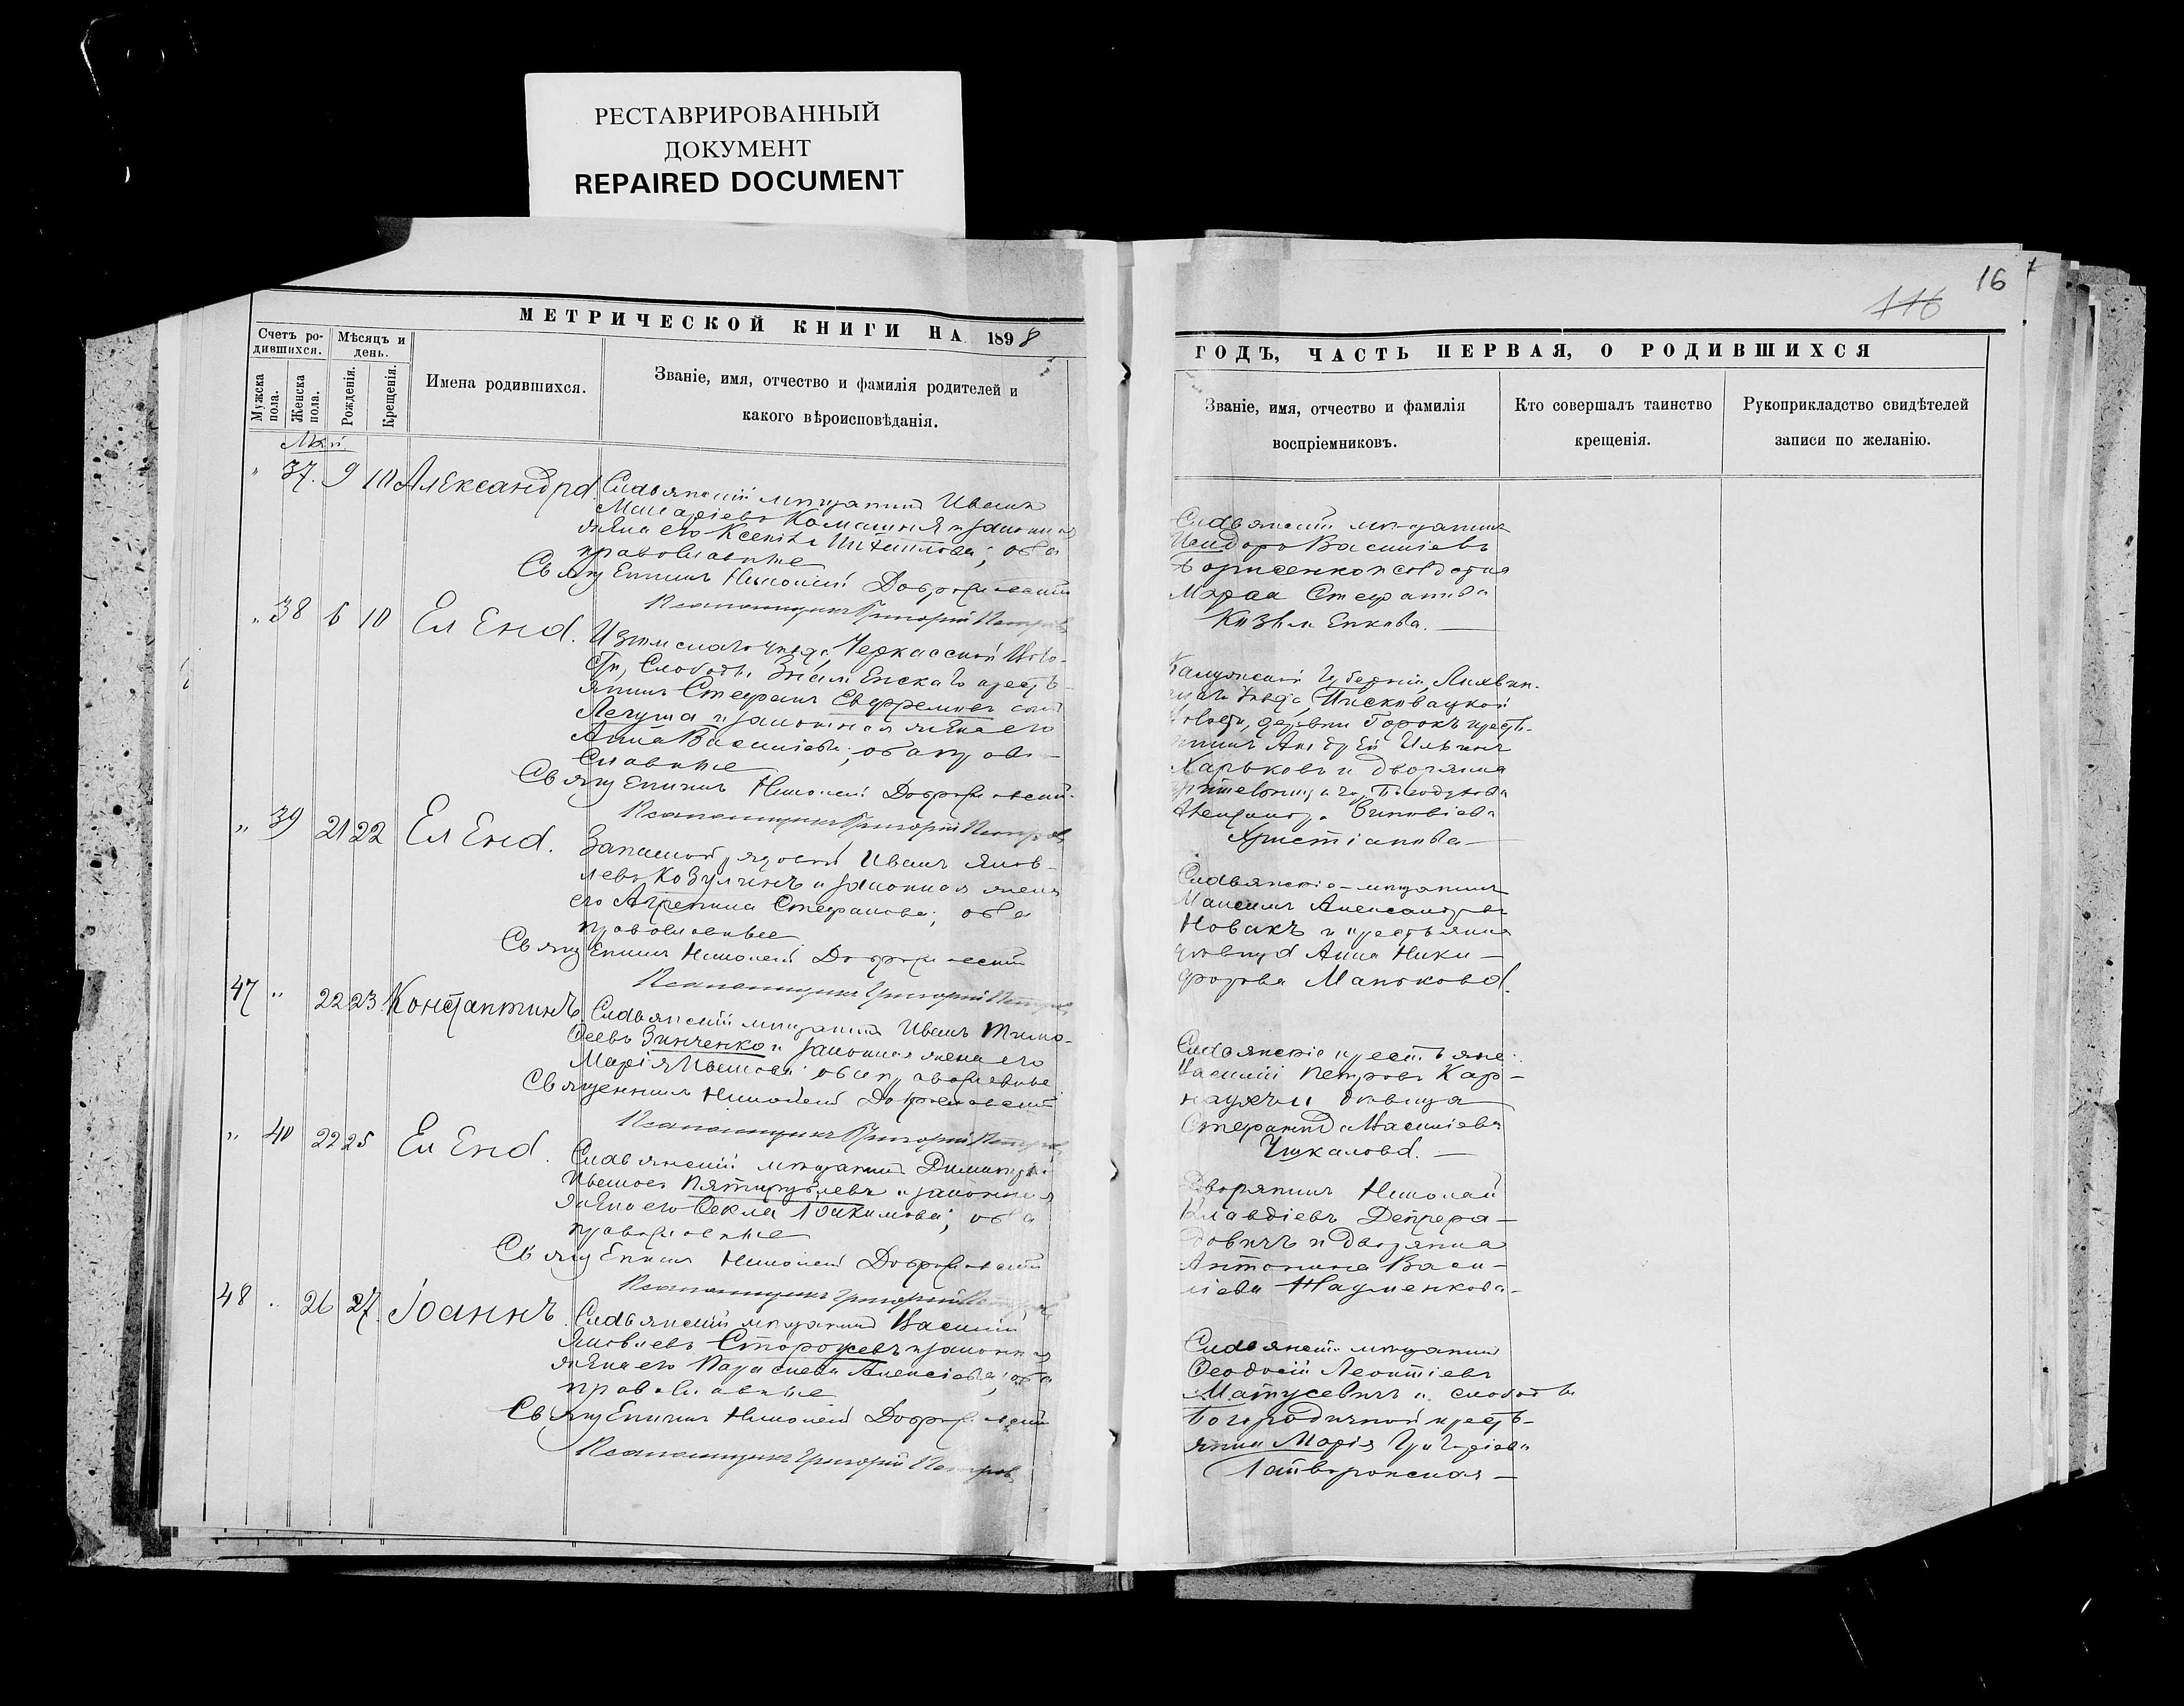 РЕСТАВРИРОВАННЫЙ
ДОКУМЕНТ
REPAIRED DOCUMENT
16
116
МЕТРИЧЕСКОЙ КНИГИ НА 1898
Счетъ ро-
дившихся.
Мѣсяцъ и
день.
Мужска
пола.
Женска
пола.
Рожденія.
Крещенія.
Имена родившихся.
Званіе, имя, отчество и фамилія родителей и
какого вѣроисповѣданія.
Май.
" 37. 9 10 Александра
Славянскій мѣщанинъ Иванъ
Комашня и законная
жена его Ксенія; оба
православные
Священникъ Николай
Псаломщикъ Григорій Петровъ
" 38 6 10 Елена.
Изюмскаго уѣзда, Черкасской Воло-
сти, Слободы Знаменскаго кресть-
янинъ Стефанъ Евфремовъ сынъ
Лагута и законная жена его
Анна Васильева; оба право-
славные
Священникъ Николай
Псаломщикъ Григорій Петровъ
" 39 21 22 Елена.
Запасной рядовой Иванъ Яков-
левъ Козулинъ и законная жена
его Агрепина Стефанова; оба
православные
Священникъ Николай
Псаломщикъ Григорій Петровъ
47 " 22 23 Константинъ
Славянскій мѣщанинъ Иванъ Тимо-
ѳеевъ Зинченко и законная жена его
Марія Иванова; оба православные
Священникъ Николай
Псаломщикъ Григорій Петровъ
" 40 22 25 Елена.
Славянскій мѣщанинъ Димитрій
Ивановъ Пятирублевъ и законная
жена его Ѳекла Іоакимова; оба
православные
Священникъ Николай
Псаломщикъ Григорій Петровъ
48 " 26 27. Іоаннъ.
Славянскій мѣщанинъ Василій
Яковлевъ Сторожевъ и законная
жена его Параскева Алексіева; оба
православные
Священникъ Николай
Псаломщикъ Григорій Петровъ
ГОДЪ, ЧАСТЬ ПЕРВАЯ, О РОДИВШИХСЯ
Званіе, имя, отчество и фамилія
воспріемниковъ.
Кто совершалъ таинство
крещенія.
Рукоприкладство свидѣтелей
записи по желанію.
Славянскій мѣщанинъ
Исидоръ Васильевъ
Борисенко и солдатка
Стефанова
Калужской губерніи, Лихвин-
скаго уѣзда,
Волости, деревни Горокъ кресть-
янинъ Андрей Ильинъ
Харьковъ и дворянка
Зиновіева
Христіанова —
Славянскіе — мѣщанинъ
Максимъ Александровъ
Новакъ и крестьянка
дѣвица Анна Ники-
форова Манькова.
Славянскіе крестьяне:
Василій Петровъ Кар-
наухъ и дѣвица
Стефанида Васильева
Чукалова. —
Дворянинъ Николай
Клавдіевъ Депрера-
довичъ и дворянка
Антонина Васи-
лієва Науменкова-
Славянскій мѣщанинъ
Ѳеодосій Леонтіевъ
Матусевичъ и слободы
Богородичной кресть-
янка Марія Григоріева